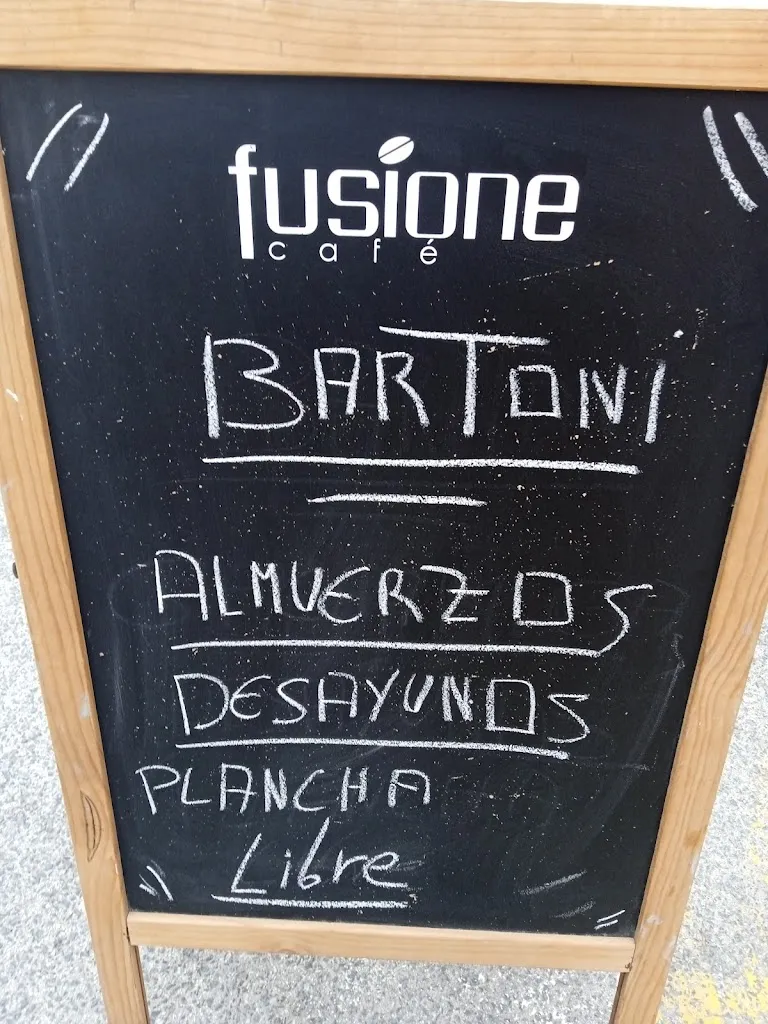 fusione
café
BARTONI
ALMUERZOS
DESAYUNOS
PLANCHA
Libre